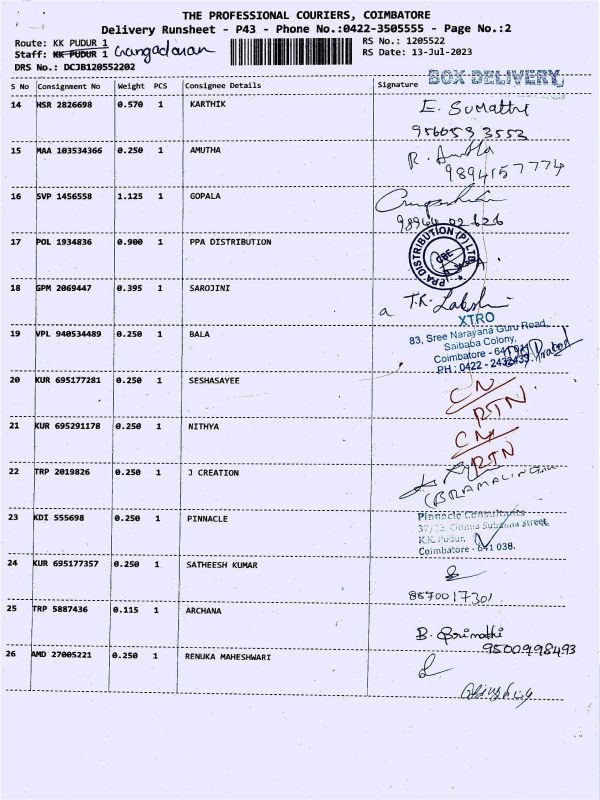 THE PROFESSIONAL COURIERS, COIMBATORE
Delivery Runsheet - P43 - Phone No.:0422-3505555 - Page No.:2
Route: KK PUDUR 1 RS No.: 1205522
Staff: KK PUDUR 1 Gangadaran RS Date: 13-Jul-2023
DRS No.: DCJB120552202
BOX DELIVERY
S No Consignment No Weight PCS Consignee Details Signature
14 HSR 2826698 0.570 1 KARTHIK E. Sumathi
9560593552
15 MAA 103534366 0.250 1 AMUTHA R. Amutha
9894157774
16 SVP 1456558 1.125 1 GOPALA
17 POL 1934836 0.900 1 PPA DISTRIBUTION
PPA DISTRIBUTION (P) LTD
18 GPM 2069447 0.395 1 SAROJINI T.K. Lakshmi
XTRO
83, Sree Narayana Guru Road,
19 VPL 940534489 0.250 1 BALA Saibaba Colony,
Coimbatore -
PH : 0422 -
20 KUR 695177281 0.250 1 SESHASAYEE CN
RTN
21 KUR 695291178 0.250 1 NITHYA CN
RTN
22 TRP 2019826 0.250 1 J CREATION
23 KDI 555698 0.250 1 PINNACLE Pinnacle Consultants
Street,
K.K. Pudur,
Coimbatore - 641 038.
24 KUR 695177357 0.250 1 SATHEESH KUMAR
8570017301
25 TRP 5887436 0.115 1 ARCHANA B. Brimathi
9500998493
26 AMD 27005221 0.250 1 RENUKA MAHESHWARI